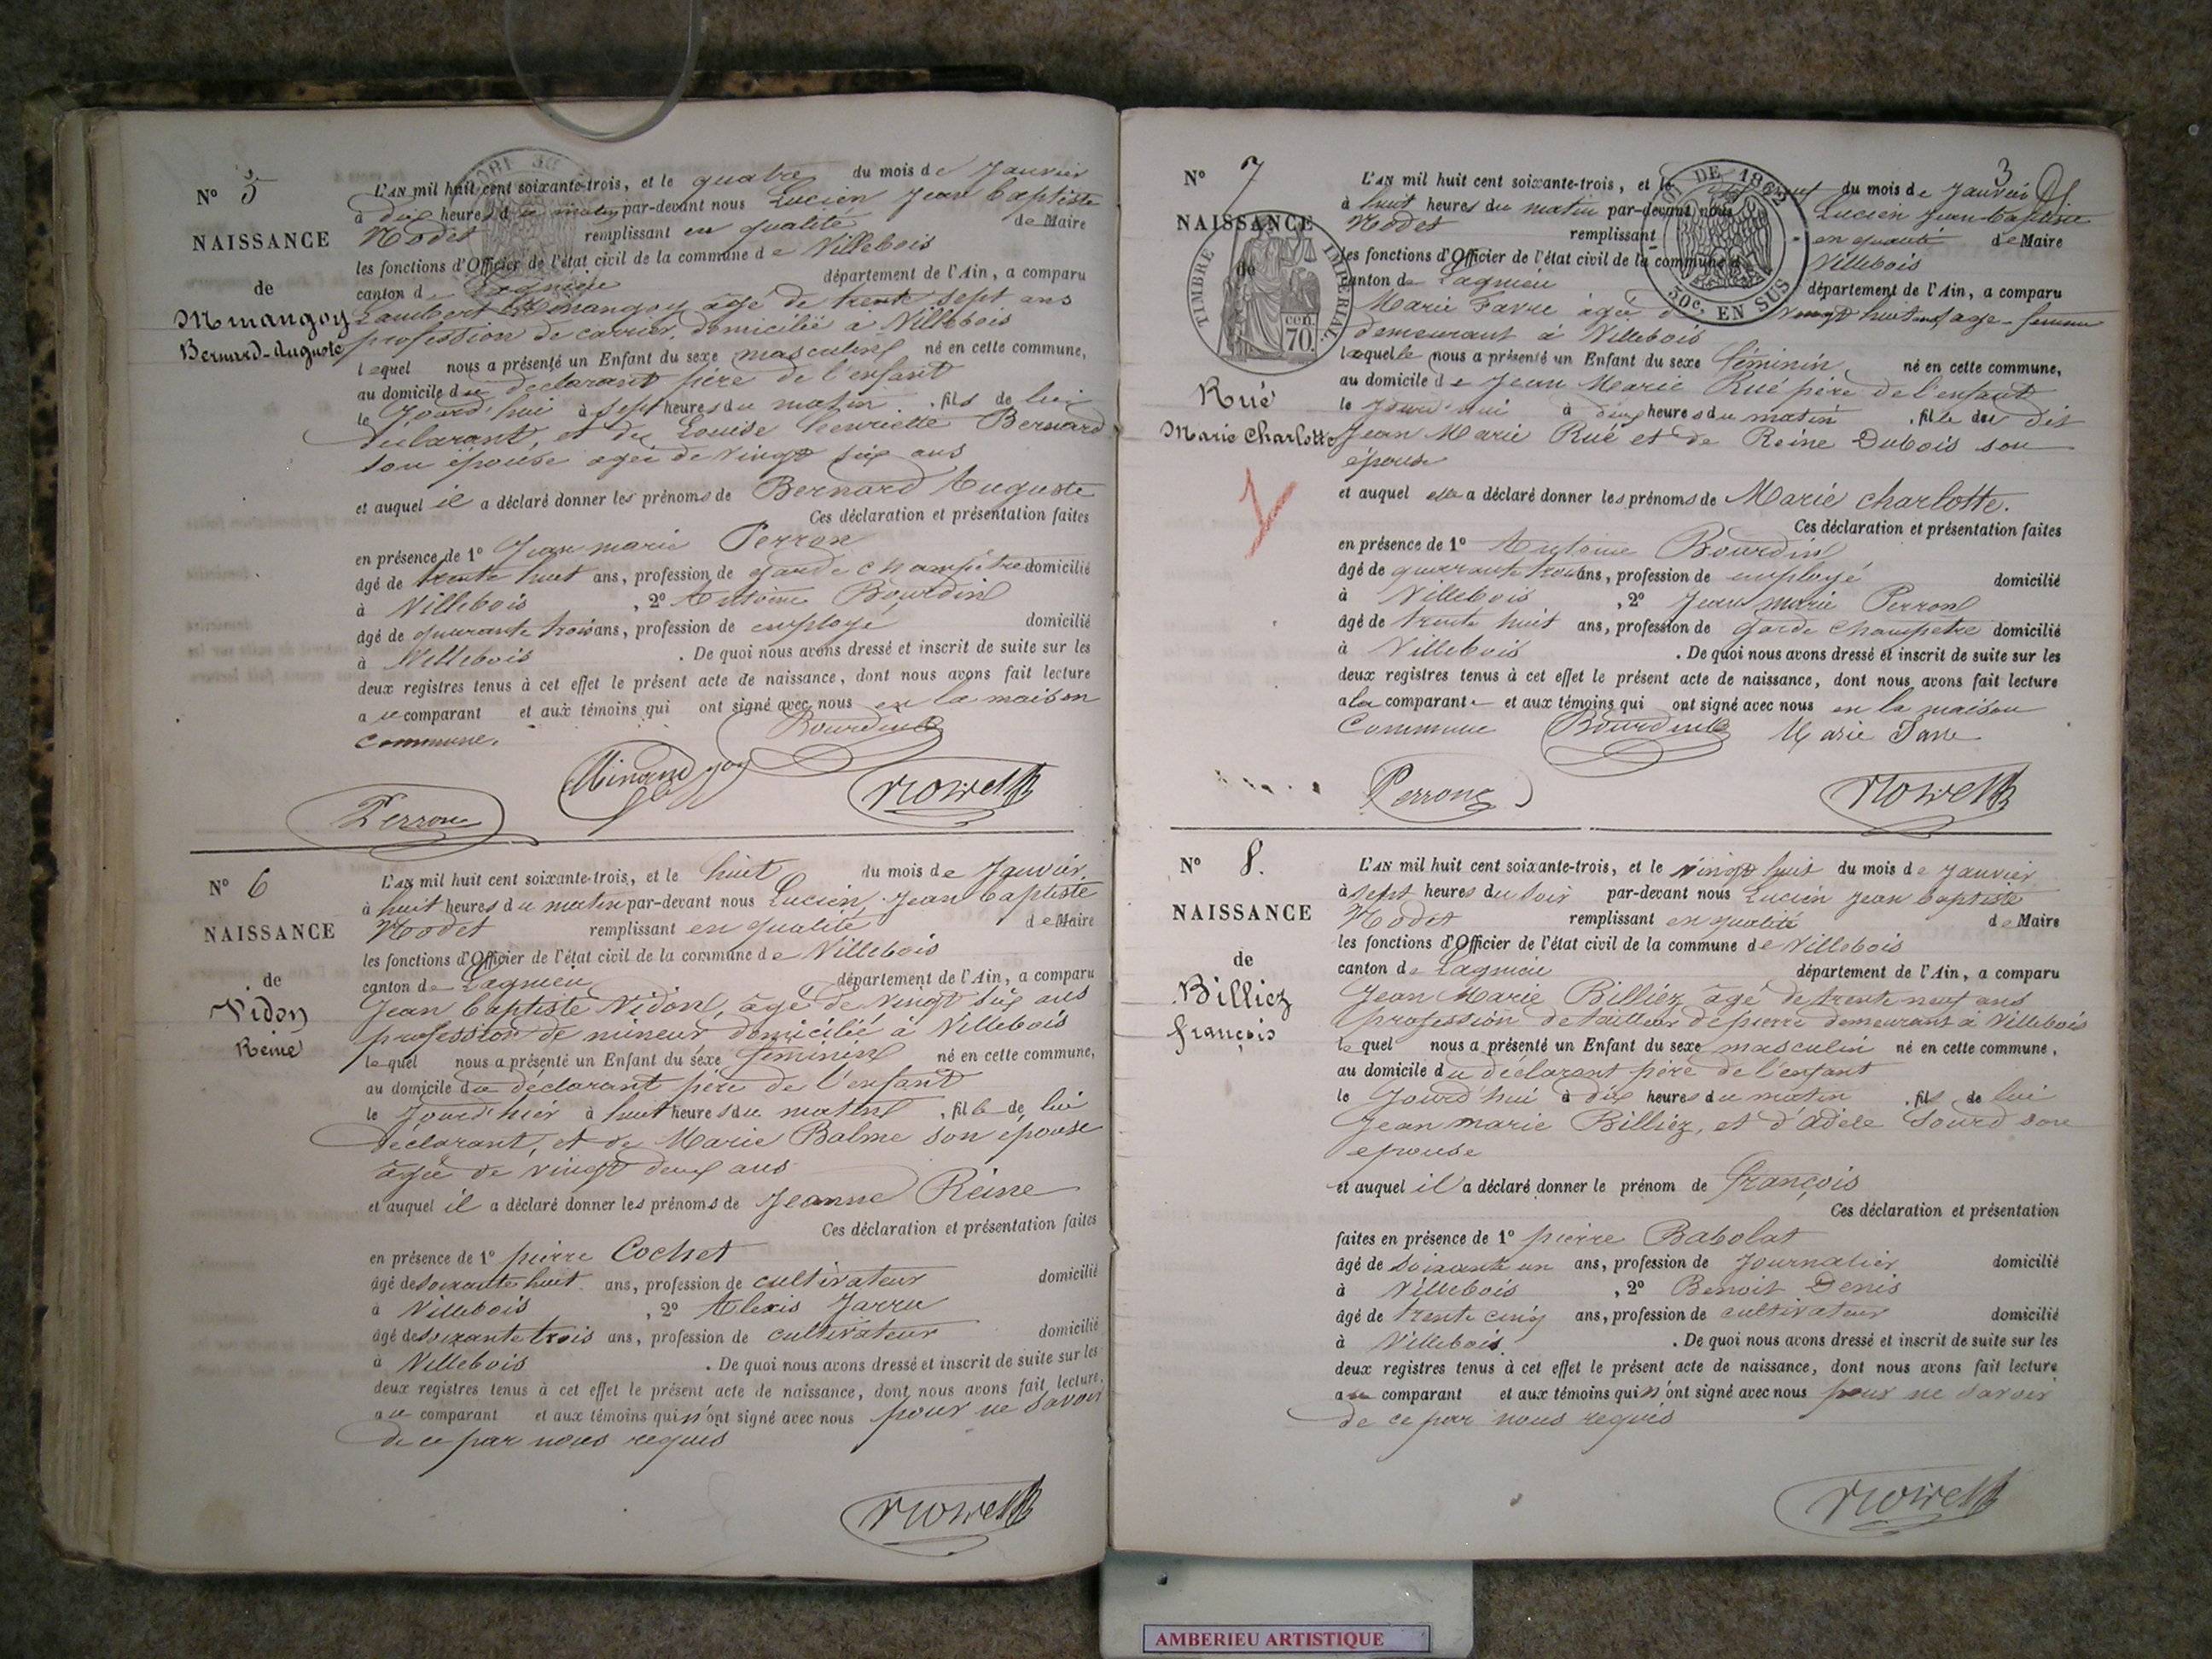 N° 5
NAISSANCE
de
Minangoy
Bernard-Auguste
L'AN mil huit cent soixante-trois, et le quatre du mois de Janvier
à dix heures du matin par-devant nous Lucien Jean baptiste
Nodet remplissant en qualité de Maire
les fonctions d'Officier de l'état civil de la commune de Villebois
canton de Lagnieu département de l'Ain, a comparu
Lambert Minangoy âgé de trente sept ans
profession de carrier, domicilié à Villebois
lequel nous a présenté un Enfant du sexe masculin né en cette commune,
au domicile du déclarant père de l'enfant
le Jourd'hui à sept heures du matin, fils de lui
déclarant, et de Louise henriette Bernard
son épouse agée de vingt six ans
et auquel il a déclaré donner les prénoms de Bernard Auguste
Ces déclaration et présentation faites
en présence de 1° Jean marie Perron
âgé de trente huit ans, profession de garde champêtre domicilié
à Villebois, 2° Antoine Bourdin
âgé de quarante trois ans, profession de employé domicilié
à Villebois. De quoi nous avons dressé et inscrit de suite sur les
deux registres tenus à cet effet le présent acte de naissance, dont nous avons fait lecture
au comparant et aux témoins qui ont signé avec nous en la maison
commune.
Bourdin
Minangoy
Perron
N° 6
NAISSANCE
de
Vidon
Reine
L'AN mil huit cent soixante-trois, et le huit du mois de Janvier,
à huit heures du matin par-devant nous Lucien, Jean baptiste
Nodet remplissant en qualité de Maire
les fonctions d'Officier de l'état civil de la commune de Villebois
canton de Lagnieu département de l'Ain, a comparu
Jean baptiste Vidon, âgé de vingt six ans
profession de mineur domicilié à Villebois
lequel nous a présenté un Enfant du sexe féminin né en cette commune,
au domicile du déclarant père de l'enfant
le Jourd'hier à huit heures du matin, fille de lui
déclarant, et de Marie Balme son épouse
âgée de vingt deux ans
et auquel il a déclaré donner les prénoms de Jeanne Reine
Ces déclaration et présentation faites
en présence de 1° pierre Cochet
âgé de soixante huit ans, profession de cultivateur domicilié
à Villebois, 2° Alexis Jarru
âgé de soixante trois ans, profession de cultivateur domicilié
à Villebois. De quoi nous avons dressé et inscrit de suite sur les
deux registres tenus à cet effet le présent acte de naissance, dont nous avons fait lecture
au comparant et aux témoins qui n'ont signé avec nous pour ne savoir
de ce par nous requis
3
N° 7
NAISSANCE
de
TIMBRE IMPÉRIAL
cen. 70
LOI DE 1862
50c. EN SUS
Rué
Marie Charlotte
L'AN mil huit cent soixante-trois, et le du mois de Janvier
à huit heures du matin par-devant nous Lucien Jean baptiste
Nodet remplissant en qualité de Maire
les fonctions d'Officier de l'état civil de la commune de Villebois
canton de Lagnieu département de l'Ain, a comparu
Marie Favre âgée de vingt huit ans sage-femme
demeurant à Villebois
laquelle nous a présenté un Enfant du sexe féminin, né en cette commune,
au domicile de Jean Marie Rué père de l'enfant
le Jourd'hui à dix heures du matin, fille du dit
Jean Marie Rué et de Reine Dubois son
épouse
et auquel elle a déclaré donner les prénoms de Marie charlotte.
Ces déclaration et présentation faites
en présence de 1° Antoine Bourdin
âgé de quarante trois ans, profession de employé domicilié
à Villebois, 2° Jean marie Perron
âgé de trente huit ans, profession de garde champetre domicilié
à Villebois. De quoi nous avons dressé et inscrit de suite sur les
deux registres tenus à cet effet le présent acte de naissance, dont nous avons fait lecture
a la comparante et aux témoins qui ont signé avec nous en la maison
Commune Bourdin Marie Favre
Perron
N° 8.
NAISSANCE
de
Billiez
françois
L'AN mil huit cent soixante-trois, et le vingt huit du mois de Janvier
à sept heures du soir par-devant nous Lucien Jean baptiste
Nodet remplissant en qualité de Maire
les fonctions d'Officier de l'état civil de la commune de Villebois
canton de Lagnieu département de l'Ain, a comparu
Jean Marie Billiez âgé de trente neuf ans
profession de tailleur de pierre demeurant à Villebois
lequel nous a présenté un Enfant du sexe masculin né en cette commune,
au domicile du déclarant père de l'enfant
le Jourd'hui à dix heures du matin, fils de lui
Jean marie Billiez, et d'adèle Sourd son
epouse
et auquel il a déclaré donner le prénom de françois
Ces déclaration et présentation
faites en présence de 1° pierre Babolat
âgé de soixante un ans, profession de Journalier domicilié
à Villebois, 2° Benoit Denis
âgé de trente cinq ans, profession de cultivateur domicilié
à Villebois. De quoi nous avons dressé et inscrit de suite sur les
deux registres tenus à cet effet le présent acte de naissance, dont nous avons fait lecture
au comparant et aux témoins qui n'ont signé avec nous pour ne savoir
de ce par nous requis
AMBERIEU ARTISTIQUE